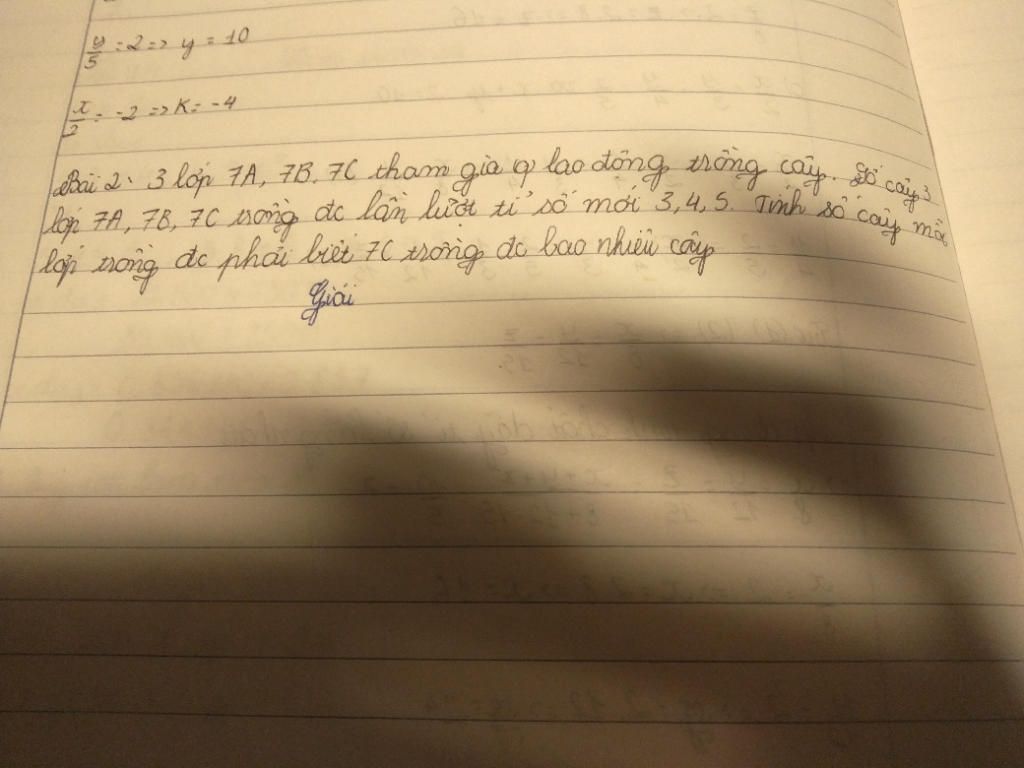 y/5 = 2 => y = 10
x/2 = -2 => K = -4
Bài 2: 3 lớp 7A, 7B, 7C tham gia lao động trồng cây. Số cây 3
lớp 7A, 7B, 7C trồng đc lần lượt tỉ số mới 3, 4, 5. Tính số cây mỗi
lớp trồng đc phải biết 7C trồng đc bao nhiêu cây
Giải